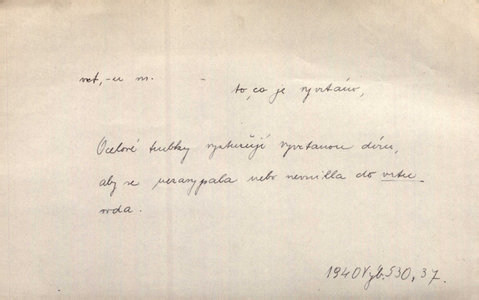 vrt, -u m. - to, co je vyvrtáno,
Ocelové trubky vyztužují vyvrtanou díru,
aby se nezasypala nebo nevnikla do vrtu
voda.
1940 Výb. 530, 37.